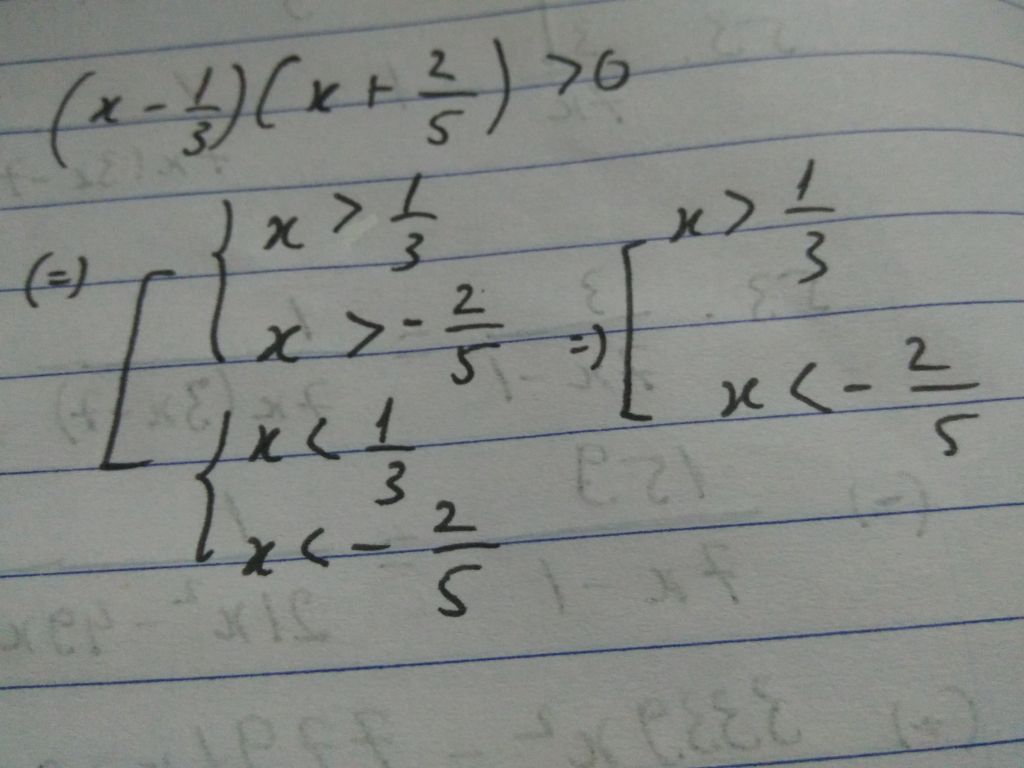 (x - 1/3)(x + 2/5) > 0
(=) [ { x > 1/3
x > - 2/5
{ x < 1/3
x < - 2/5
=) [ x > 1/3
x < - 2/5